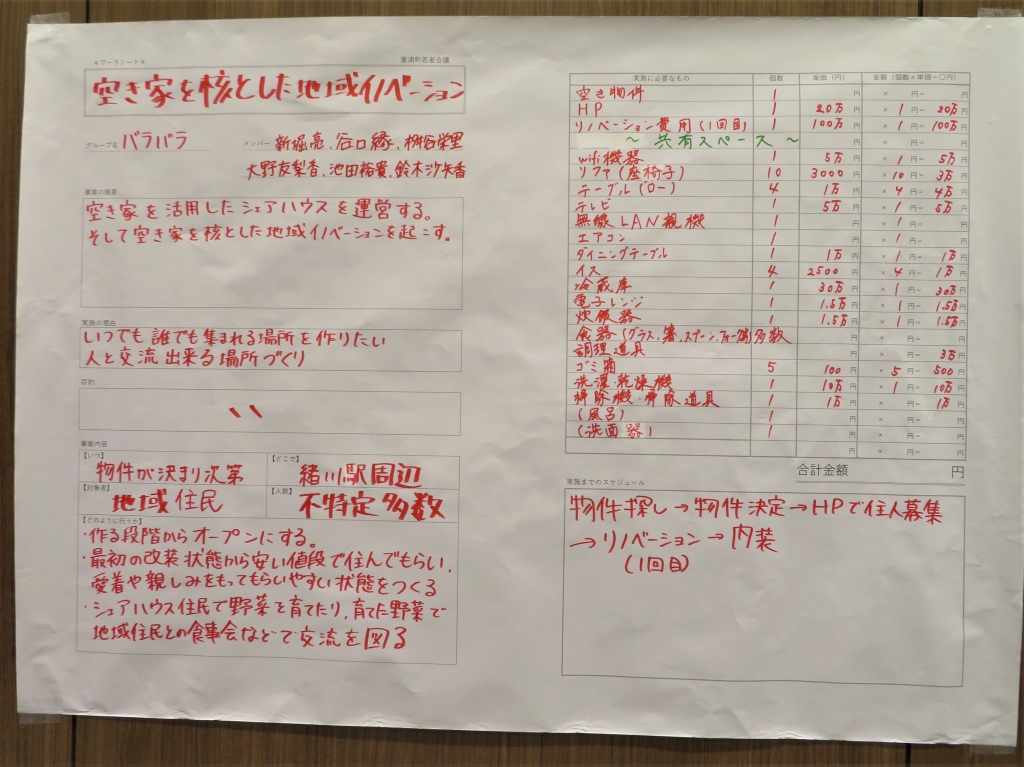 <ワークシート>
東浦町若者会議
空き家を核とした地域イノベーション
グループ名 バラバラ
メンバー 新堀亮、谷口縁、栁谷栄里
大野友梨香、池田裕貴、鈴木沙矢香
事業の概要
空き家を活用したシェアハウスを運営する。
そして空き家を核とした地域イノベーションを起こす。
実施の理由
いつでも誰でも集まれる場所を作りたい
人と交流出来る場所づくり
目的
〃
事業内容
【いつ】
物件が決まり次第
【どこで】
緒川駅周辺
【対象者】
地域住民
【人数】
不特定多数
【どのように行うか】
・作る段階からオープンにする。
・最初の改装状態から安い値段で住んでもらい、
愛着や親しみをもってもらいやすい状態をつくる
・シェアハウス住民で野菜を育てたり、育てた野菜で
地域住民との食事会などで交流を図る
実施に必要なもの 個数 単価(円) 金額(個数×単価=〇円)
空き物件 1 円 × 円= 円
HP 1 20万円 × 1円= 20万円
リノベーション費用(1回目) 1 100万円 × 1円= 100万円
~ 共有スペース ~ 円 × 円= 円
wifi機器 1 5万円 × 1円= 5万円
ソファ(座椅子) 10 3000円 × 10円= 3万円
テーブル(ロー) 4 1万円 × 4円= 4万円
テレビ 1 5万円 × 1円= 5万円
無線LAN親機 1 円 × 1円= 円
エアコン 1 円 × 1円= 円
ダイニングテーブル 1 1万円 × 1円= 1万円
イス 4 2500円 × 4円= 1万円
冷蔵庫 1 30万円 × 1円= 30万円
電子レンジ 1 1.5万円 × 1円= 1.5万円
炊飯器 1 1.5万円 × 1円= 1.5万円
食器(グラス、箸、スプーン、フォーク、皿)多数 円 × 円= 円
調理道具 円 × 円= 3万円
ゴミ箱 5 100円 × 5円= 500円
洗濯乾燥機 1 10万円 × 1円= 10万円
掃除機・掃除道具 1 1万円 × 円= 1万円
(風呂) 1 円 × 円= 円
(洗面器) 1 円 × 円= 円
円 × 円= 円
合計金額 円
実施までのスケジュール
物件探し→物件決定→HPで住人募集
→リノベーション→内装
(1回目)